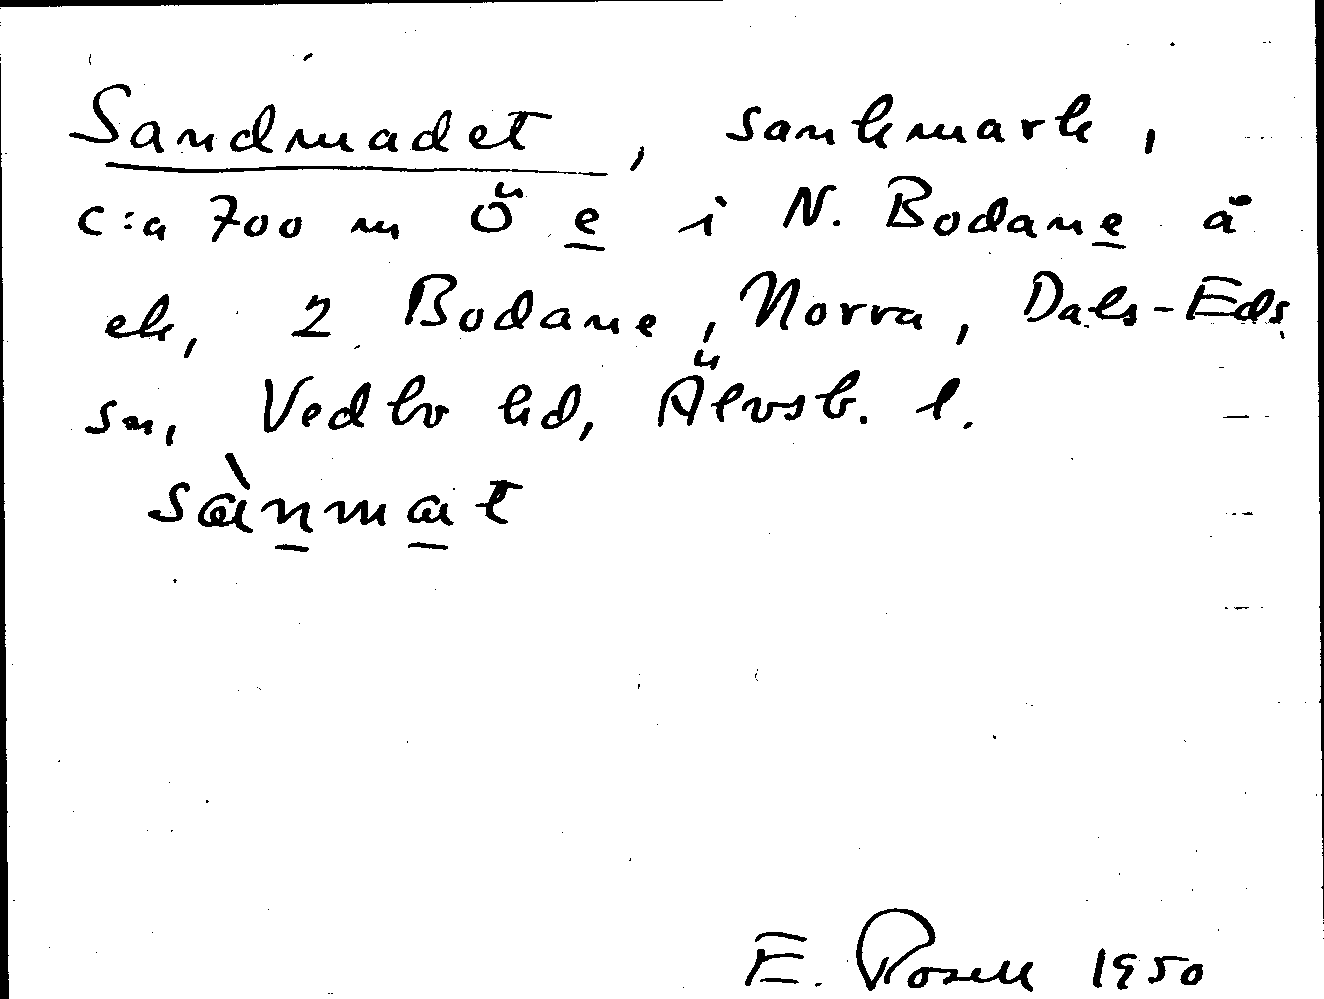 Sandmadet, sankmark,
c:a 700 m Ö e i N. Bodane å
ek, 2 Bodane, Norra, Dals-Eds
sn, Vedbo hd, Älvsb. l.
sànmat
E. Rosell 1950